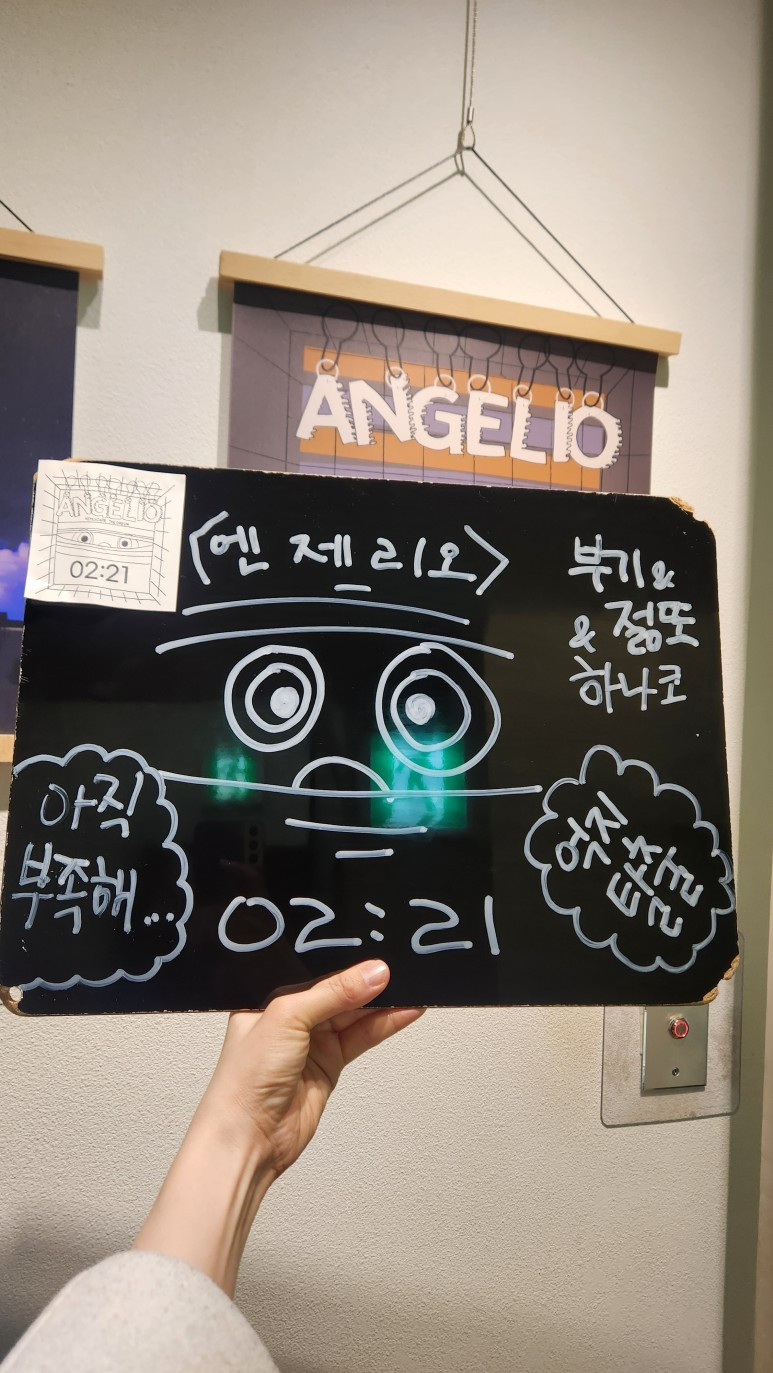 ANGELIO
ANGELIO
02:21
<엔제리오>
부기&
&점또
하나코
아직
부족해...
억지
탈출
02:21